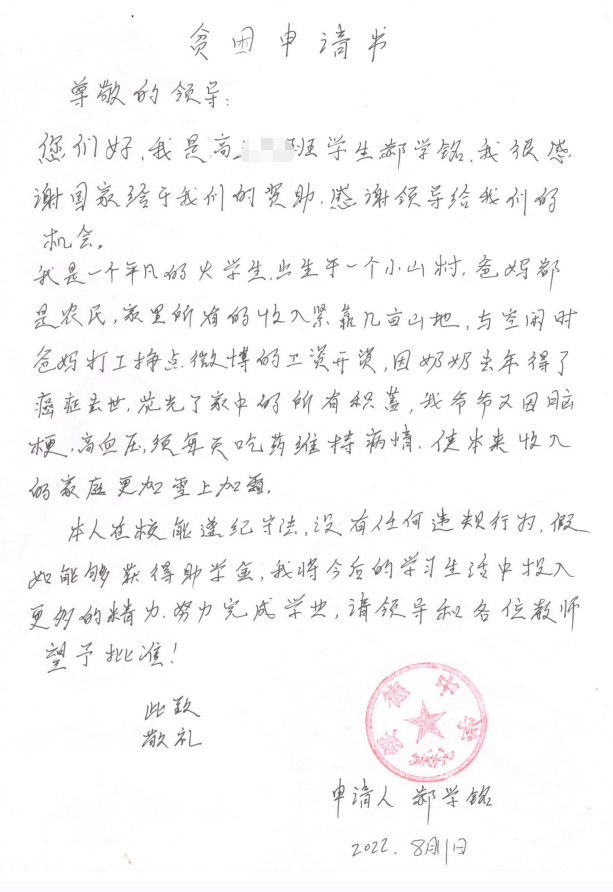 贫困申请书
尊敬的领导:
您们好,我是高 班学生郝学铭.我很感
谢国家给于我们的资助.感谢领导给我们的
机会。
我是一个平凡的大学生.出生于一个小山村,爸妈都
是农民,家里所有的收入紧靠几亩山地,与空闲时
爸妈打工挣点微博的工资开资,因奶奶去年得了
癌症去世,花光了家中的所有积蓄,我爷爷又因脑
梗,高血压,须每天吃药维持病情.使本来收入
的家庭更加雪上加霜.
本人在校能遵纪守法,没有任何违规行为.假
如能够获得助学金,我将今后的学习生活中投入
更多的精力.努力完成学业,请领导和各位教师
望予批准!
此致
敬礼
中学
申请人 郝学铭
2022. 8月11日